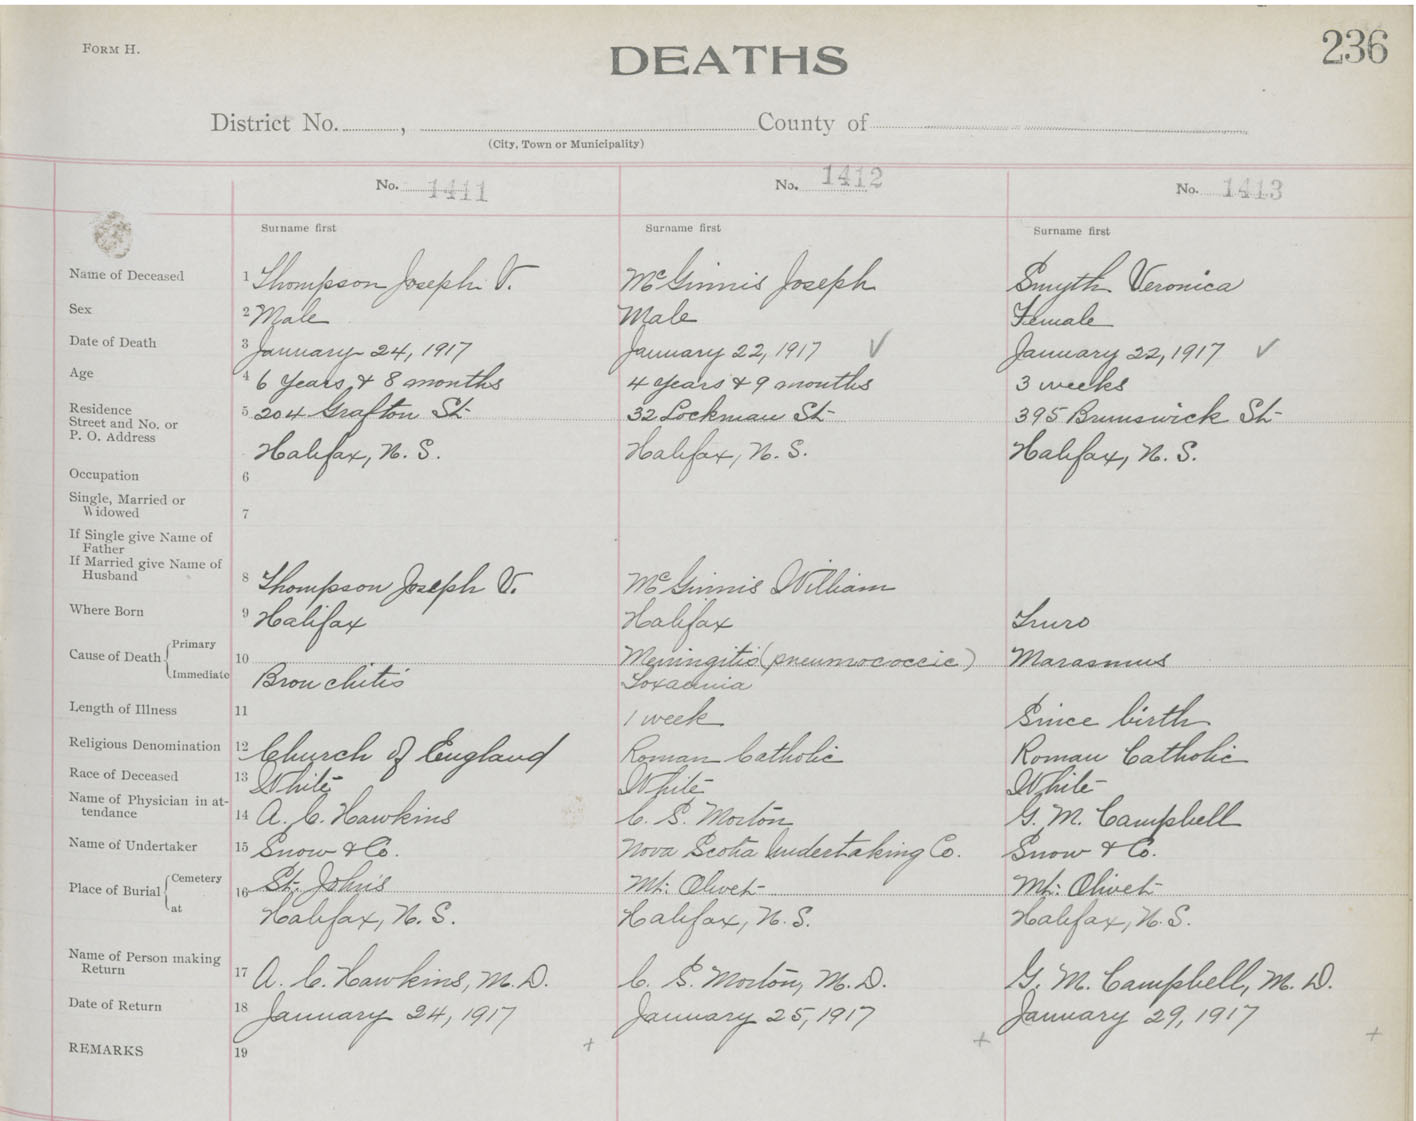 FORM H.
DEATHS
236
District No. , County of
(City, Town or Municipality)
No. 1411 No. 1412 No. 1413
Surname first Surname first Surname first
Name of Deceased 1 Thompson Joseph V. McGinnis Joseph Smyth Veronica
Sex 2 Male Male Female
Date of Death 3 January 24, 1917 January 22, 1917 ✓ January 22, 1917 ✓
Age 4 6 Years, & 8 months 4 years & 9 months 3 weeks
Residence 5 204 Grafton St. 32 Lockman St. 395 Brunswick St.
Street and No. or
P. O. Address Halifax, N. S. Halifax, N. S. Halifax, N. S.
Occupation 6
Single, Married or
Widowed 7
If Single give Name of
Father
If Married give Name of
Husband 8 Thompson Joseph V. McGinnis William
Where Born 9 Halifax Halifax Truro
Cause of Death { Primary 10 Meningitis (pneumococcic) Marasmus
Immediate Bronchitis Toxaemia
Length of Illness 11 1 week Since birth
Religious Denomination 12 Church of England Roman Catholic Roman Catholic
Race of Deceased 13 White White White
Name of Physician in at-
tendance 14 A. C. Hawkins C. S. Morton G. M. Campbell
Name of Undertaker 15 Snow & Co. Nova Scotia Undertaking Co. Snow & Co.
Place of Burial { Cemetery 16 St. John's Mt. Olivet Mt. Olivet
at Halifax, N. S. Halifax, N. S. Halifax, N. S.
Name of Person making
Return 17 A. C. Hawkins, M. D. C. S. Morton, M. D. G. M. Campbell, M. D.
Date of Return 18 January 24, 1917 January 25, 1917 January 29, 1917
REMARKS 19 + + +